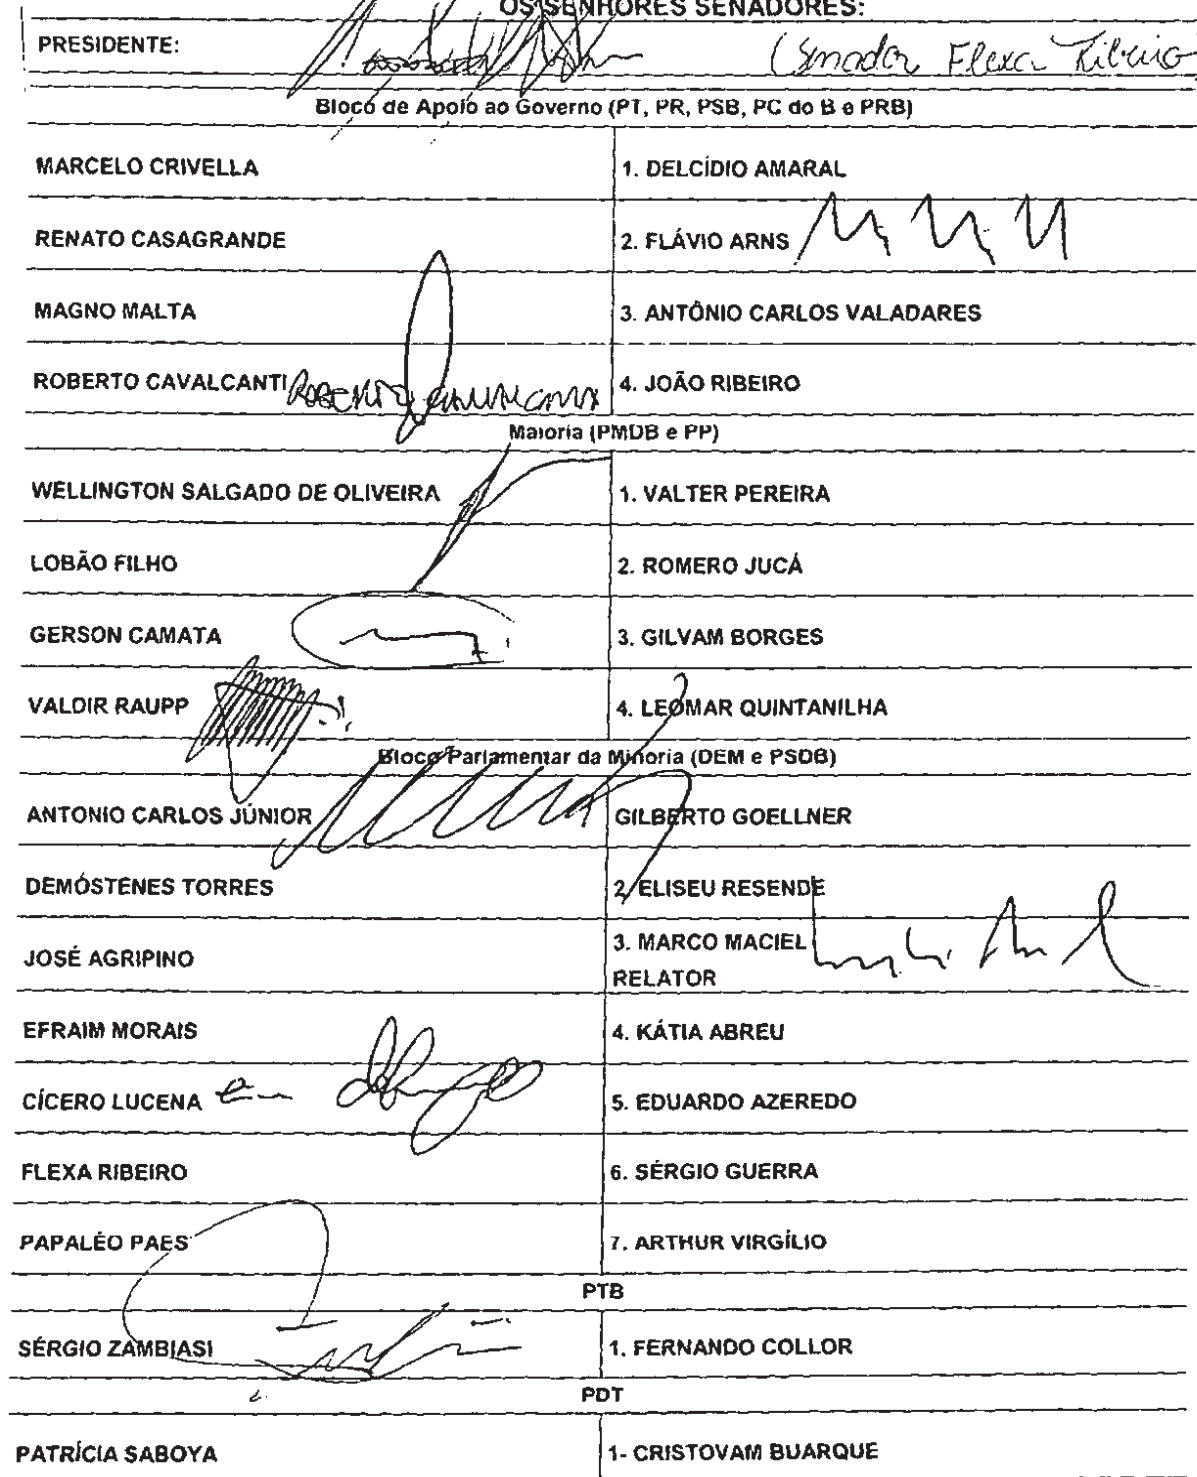 OS SENHORES SENADORES:
PRESIDENTE: (Senador Flexa Ribeiro
Bloco de Apoio ao Governo (PT, PR, PSB, PC do B e PRB)
MARCELO CRIVELLA 1. DELCÍDIO AMARAL
RENATO CASAGRANDE 2. FLÁVIO ARNS
MAGNO MALTA 3. ANTÔNIO CARLOS VALADARES
ROBERTO CAVALCANTI 4. JOÃO RIBEIRO
Maioria (PMDB e PP)
WELLINGTON SALGADO DE OLIVEIRA 1. VALTER PEREIRA
LOBÃO FILHO 2. ROMERO JUCÁ
GERSON CAMATA 3. GILVAM BORGES
VALDIR RAUPP 4. LEOMAR QUINTANILHA
Bloco Parlamentar da Minoria (DEM e PSDB)
ANTONIO CARLOS JÚNIOR GILBERTO GOELLNER
DEMÓSTENES TORRES 2. ELISEU RESENDE
JOSÉ AGRIPINO 3. MARCO MACIEL
RELATOR
EFRAIM MORAIS 4. KÁTIA ABREU
CÍCERO LUCENA 5. EDUARDO AZEREDO
FLEXA RIBEIRO 6. SÉRGIO GUERRA
PAPALÉO PAES 7. ARTHUR VIRGÍLIO
PTB
SÉRGIO ZAMBIASI 1. FERNANDO COLLOR
PDT
PATRÍCIA SABOYA 1- CRISTOVAM BUARQUE